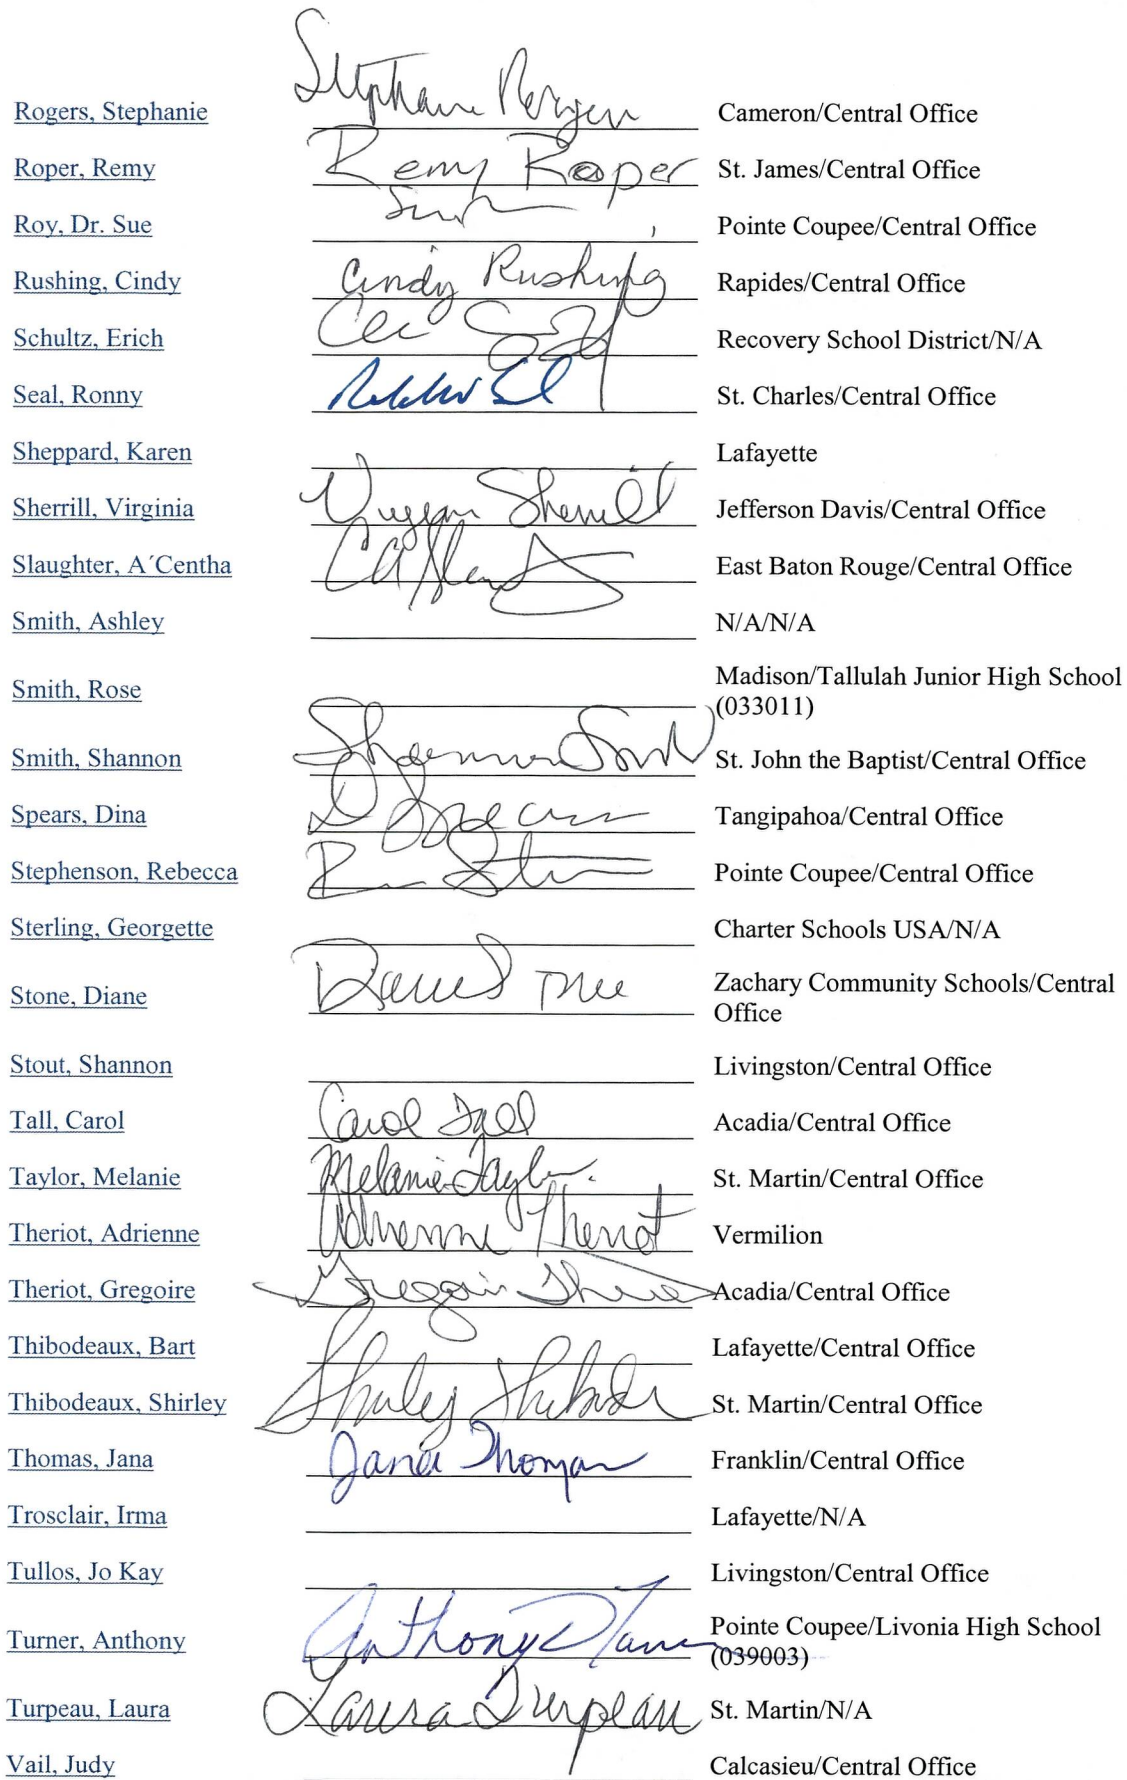 Rogers, Stephanie Stephanie Rogers Cameron/Central Office
Roper, Remy Remy Roper St. James/Central Office
Roy, Dr. Sue Pointe Coupee/Central Office
Rushing, Cindy Cindy Rushing Rapides/Central Office
Schultz, Erich Recovery School District/N/A
Seal, Ronny St. Charles/Central Office
Sheppard, Karen Lafayette
Sherrill, Virginia Virginia Sherrill Jefferson Davis/Central Office
Slaughter, A´Centha East Baton Rouge/Central Office
Smith, Ashley N/A/N/A
Smith, Rose Madison/Tallulah Junior High School
(033011)
Smith, Shannon Shannon Smith St. John the Baptist/Central Office
Spears, Dina D Spears Tangipahoa/Central Office
Stephenson, Rebecca Pointe Coupee/Central Office
Sterling, Georgette Charter Schools USA/N/A
Stone, Diane Zachary Community Schools/Central
Office
Stout, Shannon Livingston/Central Office
Tall, Carol Carol Tall Acadia/Central Office
Taylor, Melanie Melanie Taylor St. Martin/Central Office
Theriot, Adrienne Adrienne Theriot Vermilion
Theriot, Gregoire Gregoire Acadia/Central Office
Thibodeaux, Bart Lafayette/Central Office
Thibodeaux, Shirley Shirley St. Martin/Central Office
Thomas, Jana Jana Thomas Franklin/Central Office
Trosclair, Irma Lafayette/N/A
Tullos, Jo Kay Livingston/Central Office
Turner, Anthony Anthony Pointe Coupee/Livonia High School
(039003)
Turpeau, Laura Laura Turpeau St. Martin/N/A
Vail, Judy Calcasieu/Central Office